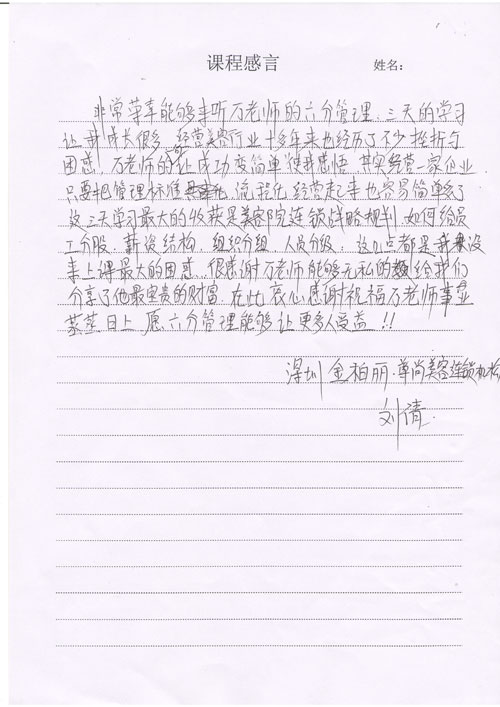 课程感言 姓名:
非常荣幸能够来听万老师的六分管理,三天的学习
让我成长很多,经营美容行业十多年来也经历了不少挫折与
困惑,万老师的让成功变简单使我感悟 其实经营一家企业
只要把管理标准化,流程化 经营起来也容易简单多了
这三天学习最大的收获是美容院连锁战略规划,如何给员
工分股,薪资结构,组织分组,人员分级,这几点都是我没
来上课最大的困惑,很感谢万老师能够无私的给我们
分享了他最宝贵的财富,在此衷心感谢祝福万老师事业
蒸蒸日上 愿六分管理能够让更多人受益!!
深圳金柏丽·尊尚美容连锁机构
刘倩